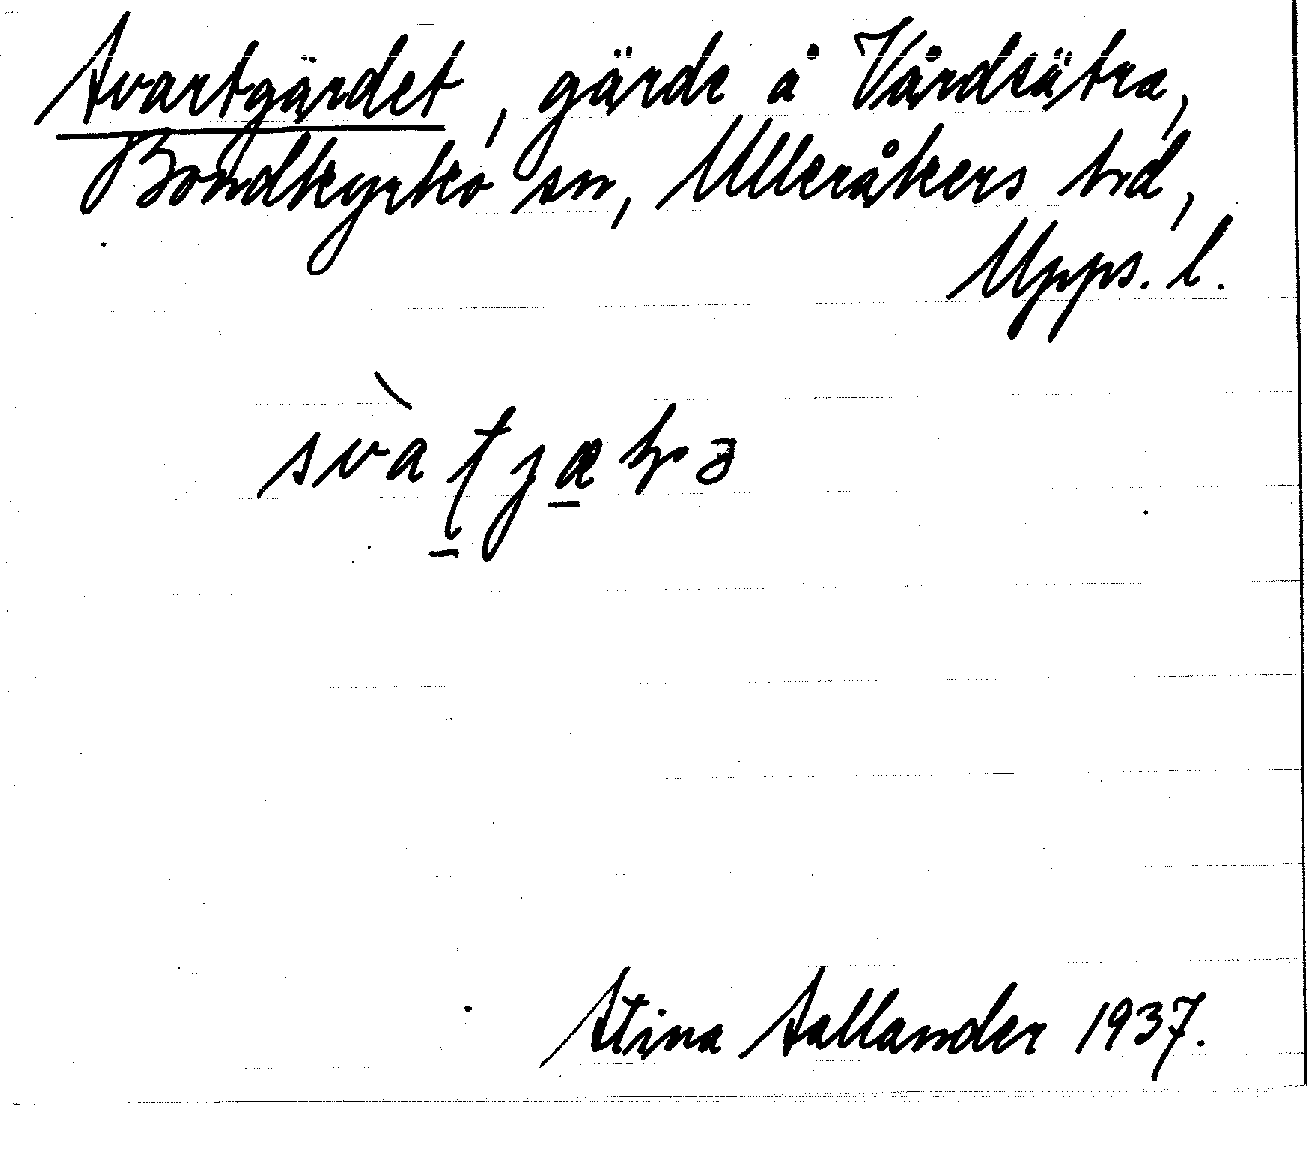 Svartgärdet, gärde å Vårdsätra,
Bondkyrko sn, Ulleråkers hd,
Upps. l.
Stina Sallander 1937.